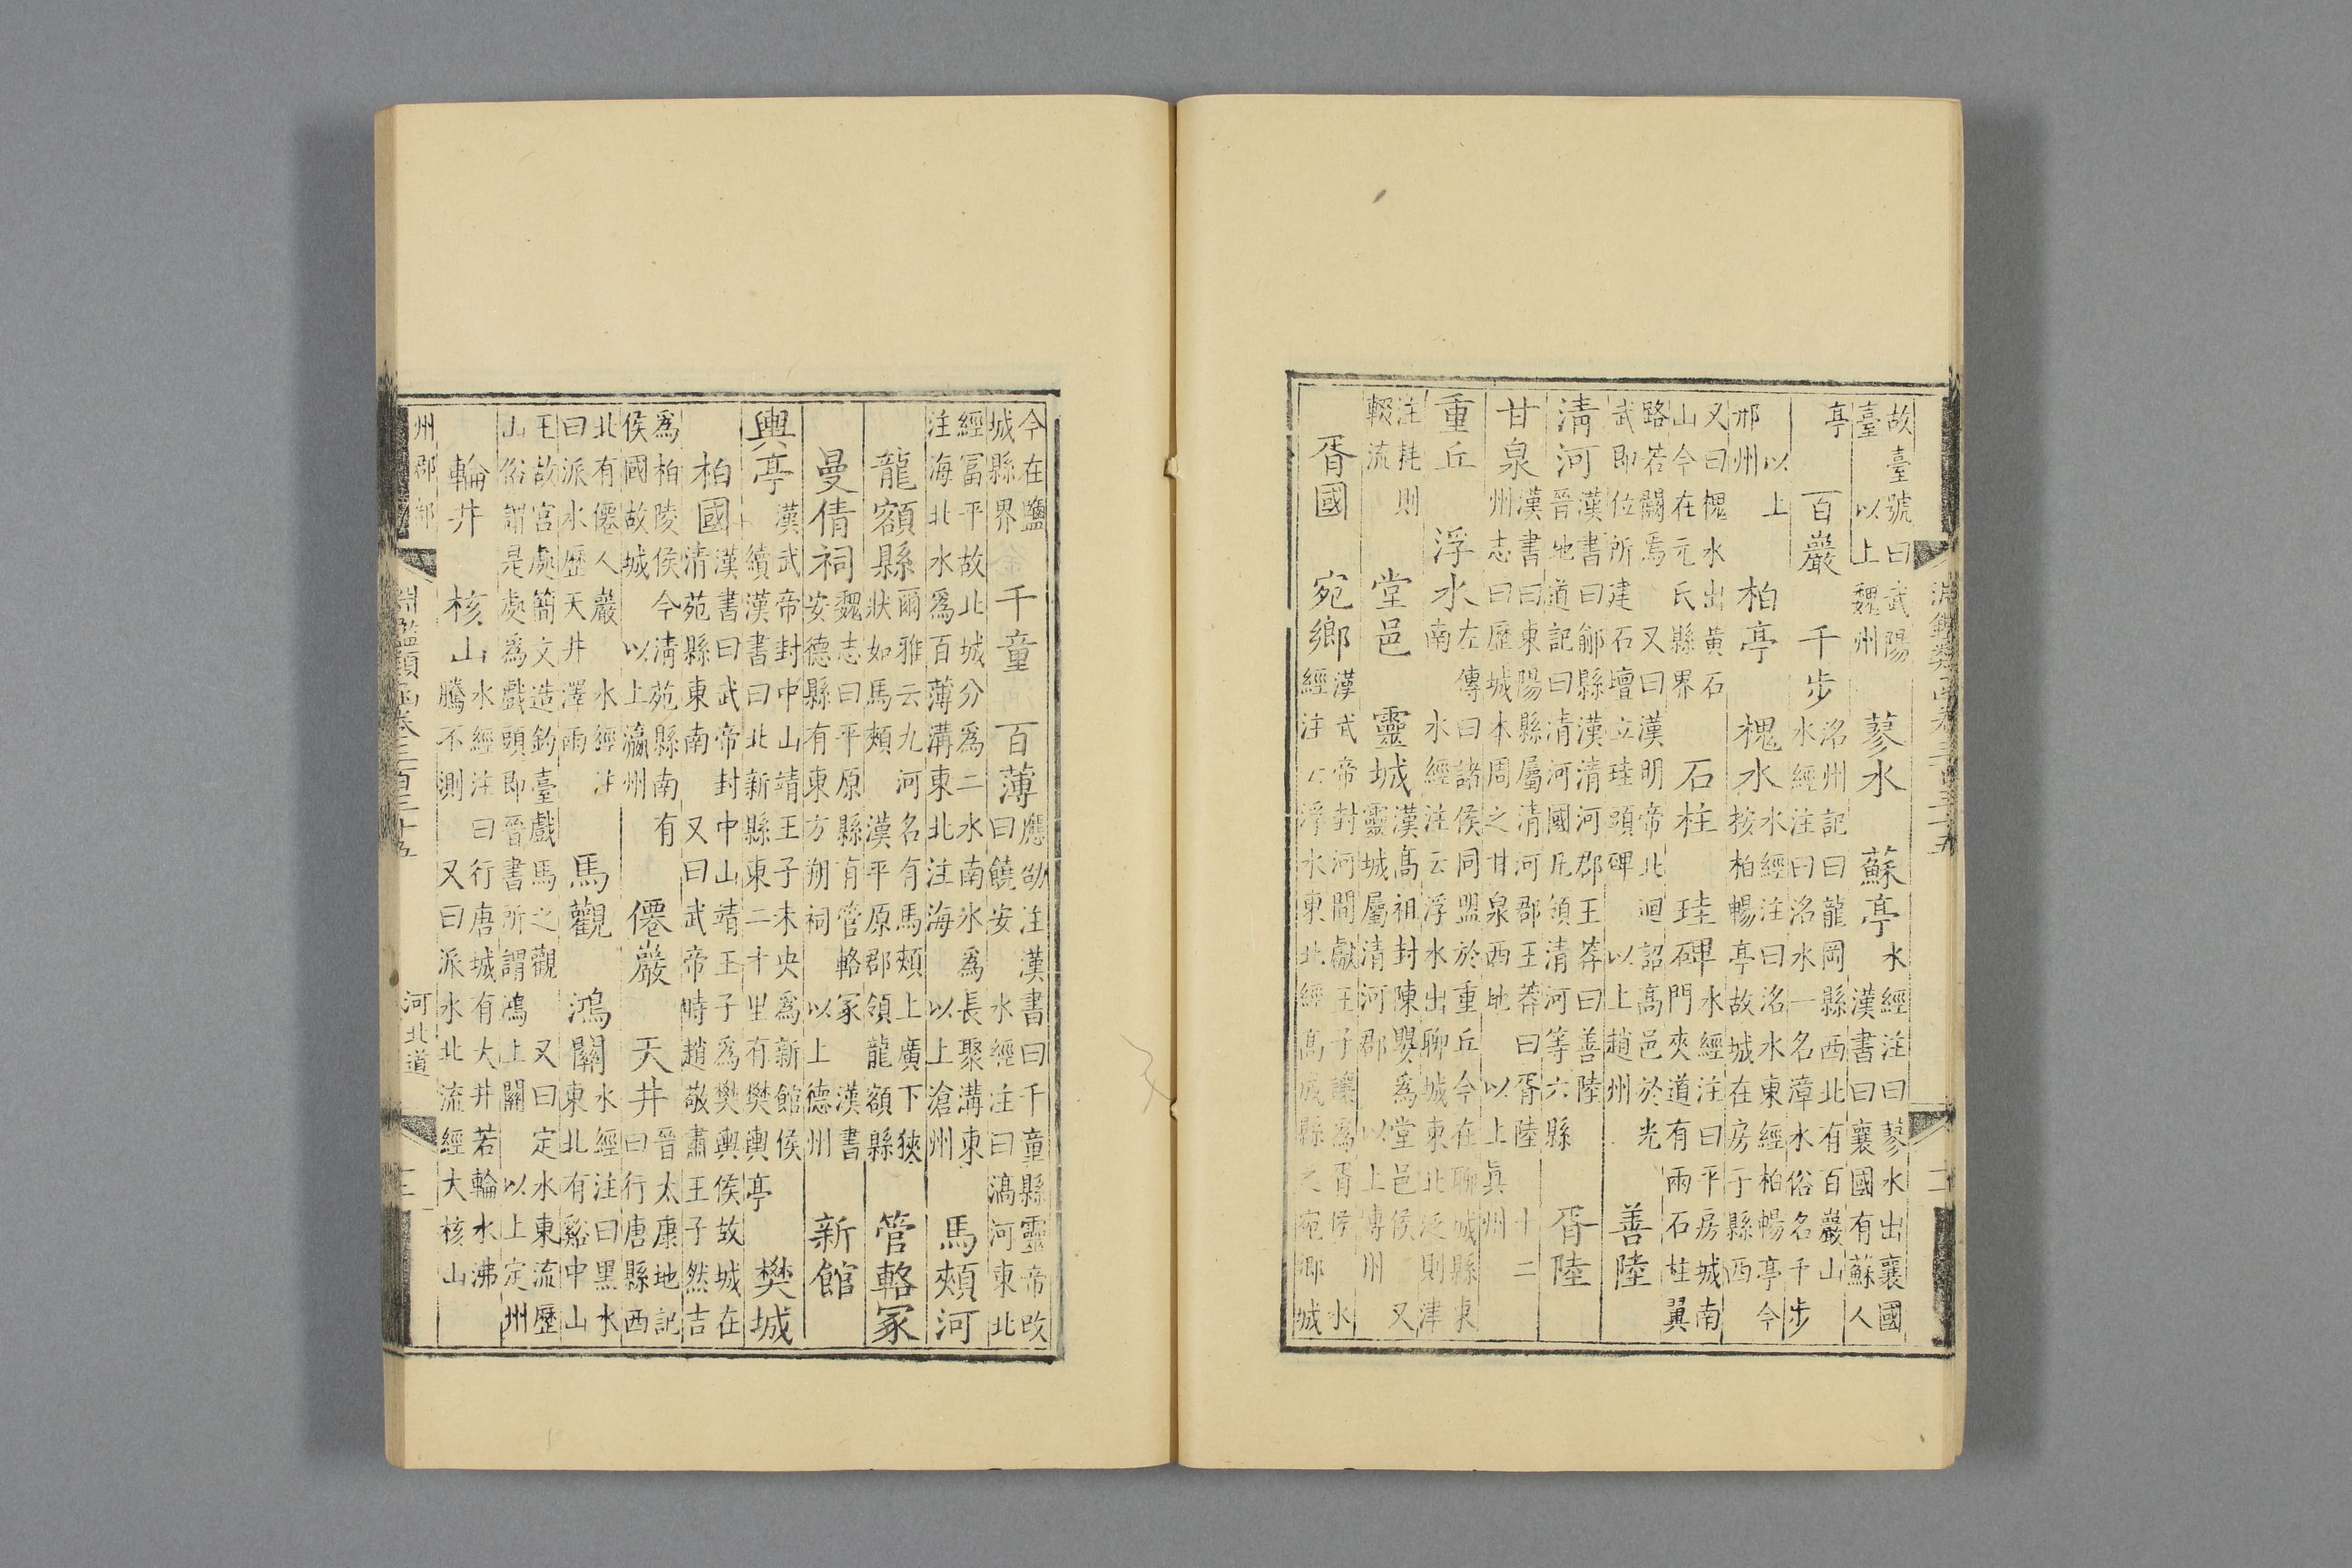 故臺號曰武陽
臺 以上魏州
蓼水 蘇亭
水經注曰蓼水出襄國
漢書曰襄國有蘇人
亭
百巖 千步
洺州記曰龍岡縣西北有百巖山
水經注曰洺水一名漳水俗名千步
以上
邢州
柏亭 槐水
水經注曰洺水東經柏暢亭今
按柏暢亭故城在房于縣西
又曰槐水出黃石
山今在元氏縣界
石柱 珪碑
水經注曰平房城南
門夾道有兩石柱翼
路若闕焉 又曰漢明帝北迴詔高邑於光
武即位所建石壇立珪頭碑 以上趙州
善陸
清河
漢書曰鄃縣漢清河郡王莽曰善陸
晉地道記曰清河國凡領清河等六縣
胥陸
甘泉
漢書曰東陽縣屬清河郡王莽曰胥陸 十二
州志曰歷城本周之甘泉西地 以上貝州
重丘 浮水
左傳曰諸侯同盟於重丘今在聊城縣東
南 水經注云浮水出聊城東北泛則津
注耗則
輟流
堂邑 靈城
漢高祖封陳嬰爲堂邑侯 又
靈城屬清河郡 以上博州
胥國 宛鄉
漢武帝封河間獻王子讓爲胥侯 水
經注曰浮水東北經高成縣之宛鄉城
淵鑑類函卷三百三十五
二
今在鹽
城縣界
千童 百薄
應劭注漢書曰千童縣靈帝改
曰饒安 水經注曰滈河東北
經富平故北城分爲二水南水爲長聚溝東
注海北水爲百薄溝東北注海 以上滄州
馬頰河
龍額縣
爾雅云九河名有馬頰上廣下狹
狀如馬頰 漢平原郡領龍額縣
管輅冢
曼倩祠
魏志曰平原縣有管輅冢 漢書
安德縣有東方朔祠 以上德州
新館
輿亭
漢武帝封中山靖王子未央爲新館侯
續漢書曰北新縣東二十里有樊輿亭
樊城
柏國
漢書曰武帝封中山靖王子爲樊輿侯故城在
清苑縣東南 又曰武帝時趙敬肅王子然吉
爲柏陵侯今清苑縣南有
侯國故城 以上瀛州
僊巖 天井
晉太康地記
曰行唐縣西
北有僊人巖 水經注
曰派水歷天井澤雨
馬觀 鴻關
水經注曰黑水
東北有谿中山
王故宮處簡文造釣臺戲馬之觀 又曰定水東流歷
山俗謂是處爲戲頭即晉書所謂鴻上關 以上定州
輪井 核山
水經注曰行唐城有大井若輪水沸
騰不測 又曰派水北流經大核山
淵鑑類函卷三百三十五
州郡部
河北道
三